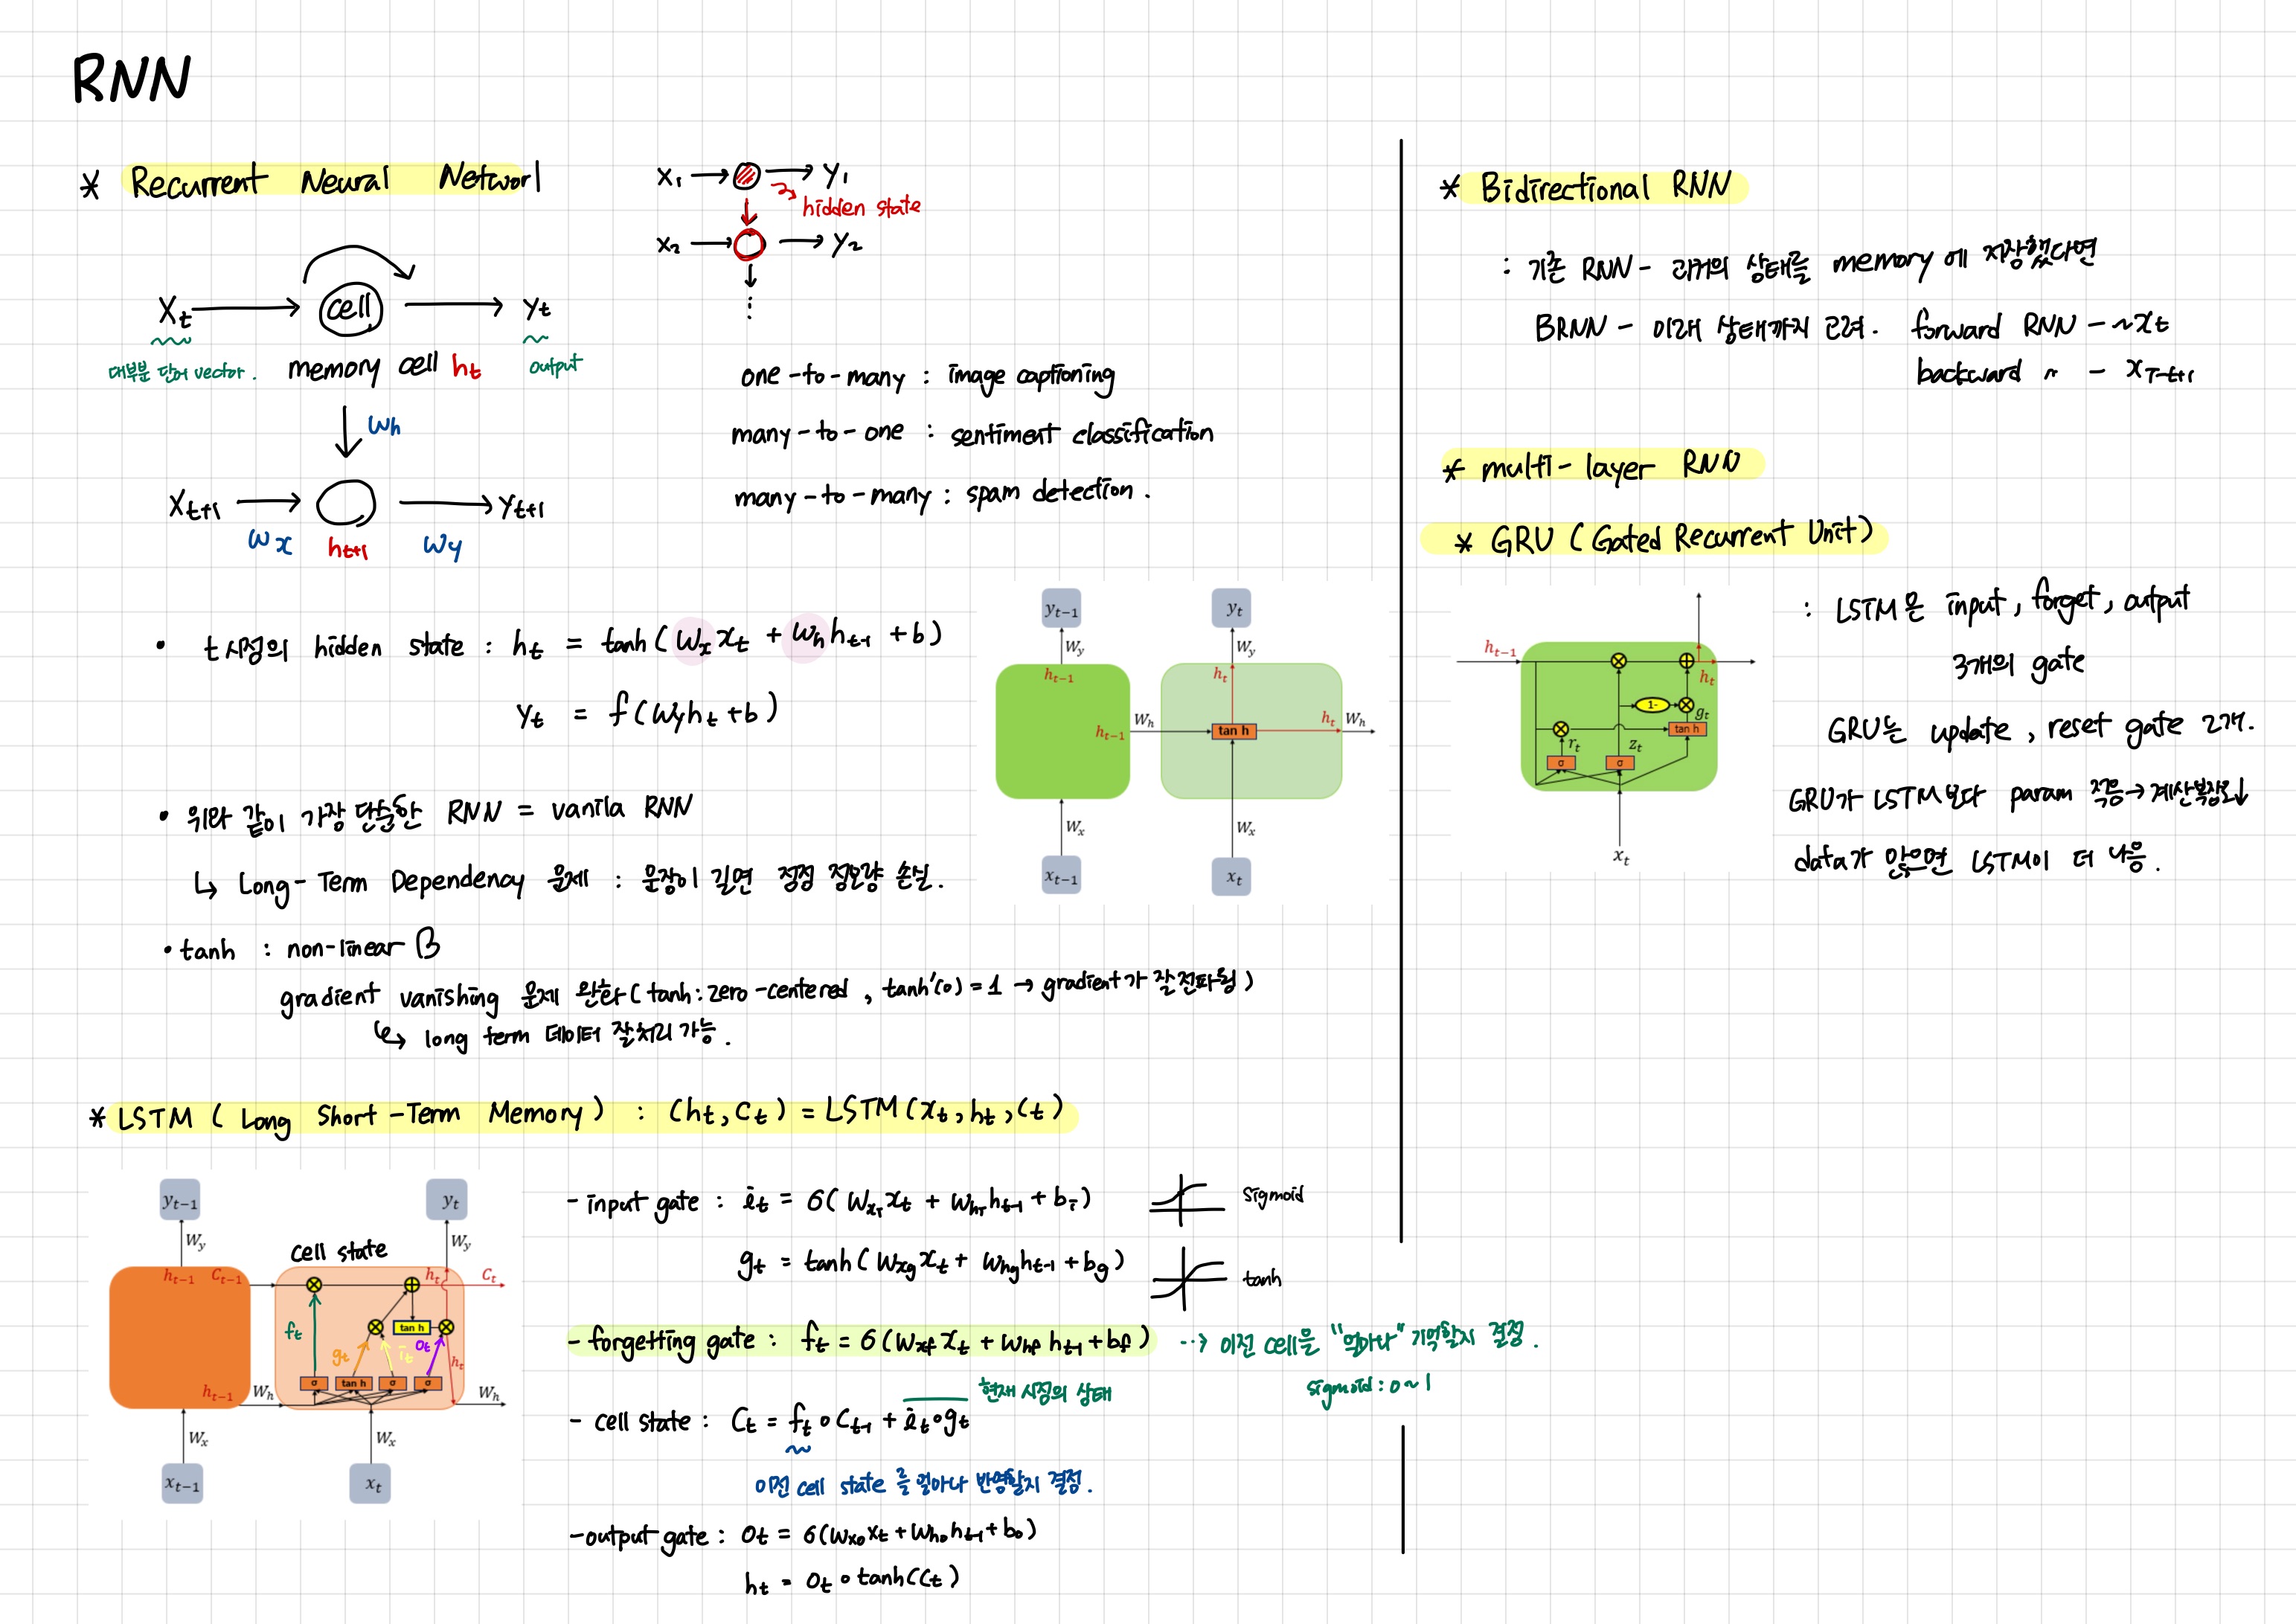 RNN
* Recurrent Neural Networ
X₁ → Y₁
hidden state
X₂ → Y₂
⋮
Xt → cell → Yt
대부분 단어 vector. memory cell ht output
Wh
Xt+1 → Yt+1
Wx ht+1 Wy
one-to-many : image captioning
many-to-one : sentiment classification
many-to-many : spam detection.
• t시점의 hidden state : ht = tanh(Wx xt + Wh ht-1 + b)
yt = f(Wy ht + b)
yt-1 yt
Wy Wy
ht-1 ht
ht-1 Wh tan h ht Wh
Wx Wx
xt-1 xt
• 위와 같이 가장 단순한 RNN = vanila RNN
↳ Long-Term Dependency 문제 : 문장이 길면 점점 정보량 손실.
• tanh : non-linear
gradient vanishing 문제 완화(tanh:zero-centered, tanh'(0)=1 → gradient가 잘 전파됨)
↳ long term 데이터 잘처리 가능.
* LSTM ( Long Short-Term Memory ) : (ht, Ct) = LSTM(xt, ht, Ct)
yt-1 yt
Wy Wy
cell state
ht-1 Ct-1 ht Ct
ft gt it tan h ot ht
σ tan h σ σ
ht-1 Wh Wh
Wx Wx
xt-1 xt
- input gate : it = σ(Wxi xt + Whi ht-1 + bi) sigmoid
gt = tanh(Wxg xt + Whg ht-1 + bg) tanh
- forgetting gate : ft = σ(Wxf xt + Whf ht-1 + bf) ⇢ 이전 cell을 "얼마나" 기억할지 결정.
현재 시점의 상태 sigmoid : 0~1
- cell state : Ct = ft∘Ct-1 + it∘gt
이전 cell state 를 얼마나 반영할지 결정.
- output gate : Ot = σ(Wxo xt + Who ht-1 + bo)
ht = Ot∘tanh(Ct)
* Bidirectional RNN
: 기존 RNN - 과거의 상태를 memory에 저장했다면
BRNN - 미래 상태까지 고려. forward RNN - ~xt
backward " - xT-t+1
* multi-layer RNN
* GRU (Gated Recurrent Unit)
ht-1 ht
1- gt
rt zt tan h
σ σ
xt
: LSTM은 input, forget, output
3개의 gate
GRU는 update, reset gate 2개.
GRU가 LSTM보다 param 적음→계산복잡도↓
data가 많으면 LSTM이 더 나음.